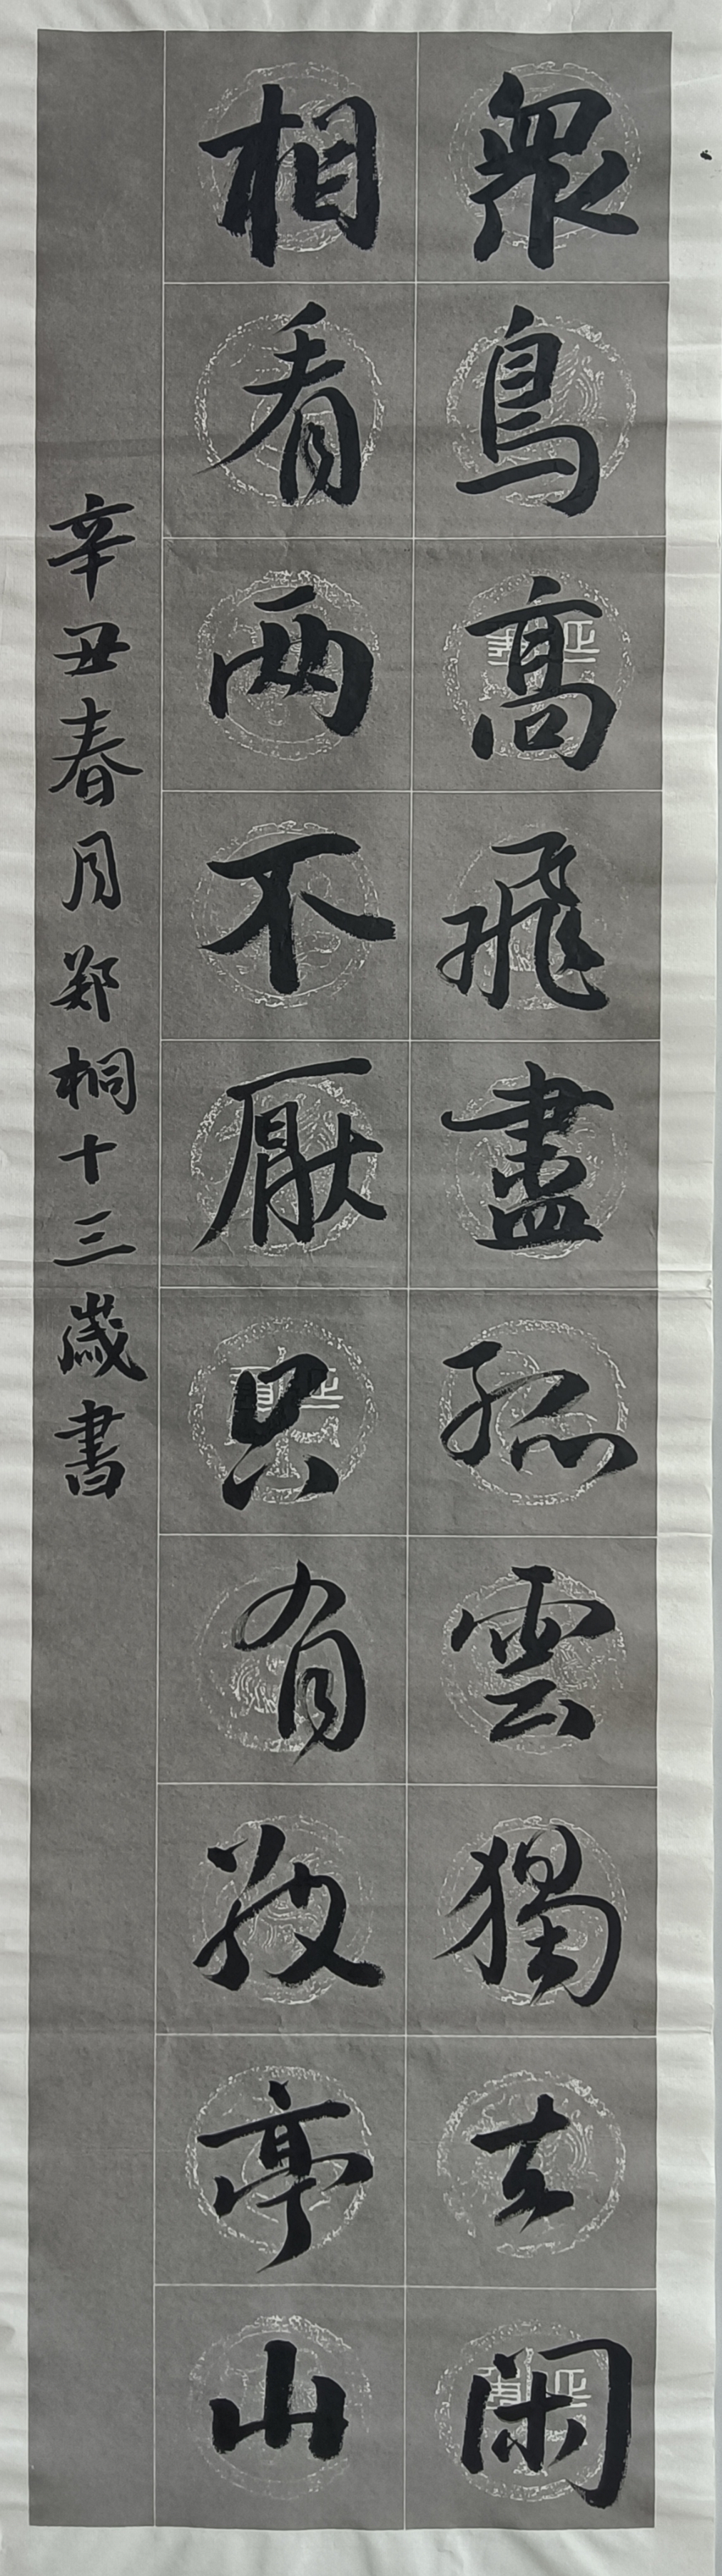 眾鳥高飛盡孤雲獨去閑
相看两不厭只有敬亭山
辛丑春月郑桐十三歲書